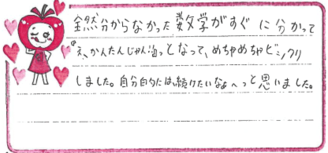 全然分からなかった数学がすぐに分かって
"え、かんたんじゃん!!"ってなって、めちゃめちゃビックリ
しました。自分的には、続けたいなぁ〜っと思いました。